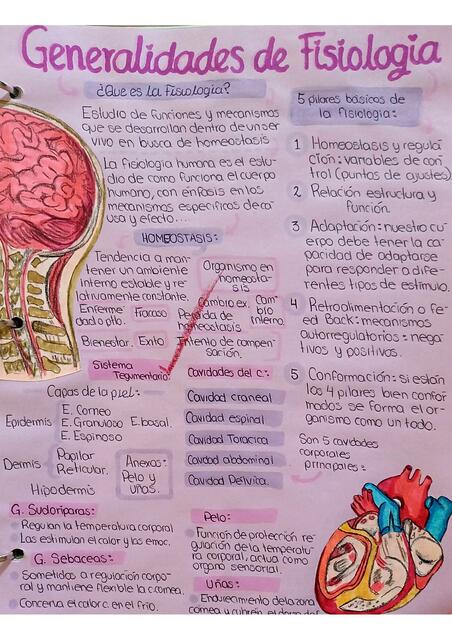 Generalidades de Fisiologia
¿Que es la fisiologia?
Estudio de funciones y mecanismos
que se desarrollan dentro de un ser
vivo en busca de homeostasis
La fisiologia humana es el estu-
dio de como funciona el cuerpo
humano, con énfasis en los
mecanismos especificos de ca-
usa y efecto....
HOMEOSTASIS:
Tendencia a man-
tener un ambiente
interno estable y re-
lativamente constante.
Organismo en
homeosta-
sis
Cambio ex.
Cam-
bio
interno.
Enferme
dad o pto.
Fracaso
Perdida de
homeostasis
Bienestar.
Exito
Intento de compen-
sación.
Sistema
Tegumentario:
Capas de la piel:
Epidermis
E. Corneo
E. Granuloso
E. Espinoso
E. basal.
Dermis
Papilar
Reticular.
Hipodermis
Anexos:
Pelo y
uñas.
Cavidades del C:
Cavidad craneal
Cavidad espinal
Cavidad Toracica
Cavidad abdominal
Cavidad Pelvica.
G. Sudoriparas:
Regulan la temperatura corporal
Las estimulan el calor y las emoc.
G. Sebaceas:
Sometidas a regulación corpo-
ral y mantiene flexible la cornea.
Concerva el calor c. en el frio.
Pelo:
Función de protección re-
gulación de la temperatu-
ra corporal, actua como
organo sensorial.
Uñas:
Endurecimiento de la zona
cornea y cubren el dorso del
5 pilares básicos de
la fisiologia:
1 Homeostasis y regula
ción: variables de con
trol (puntos de ajustes)
2 Relación estructura y
función.
3 Adaptación: nuestro cu
erpo debe tener la ca-
pacidad de adaptarse
para responder a dife-
rentes tipos de estimulo.
4 Retroalimentación o fe
ed Back: mecanismos
autorregulatorios = nega
tivos y positivos.
5 Conformación: si están
los 4 pilares bien confor
mados se forma el or-
ganismo como un todo.
Son 5 cavidades
corporales
principales: